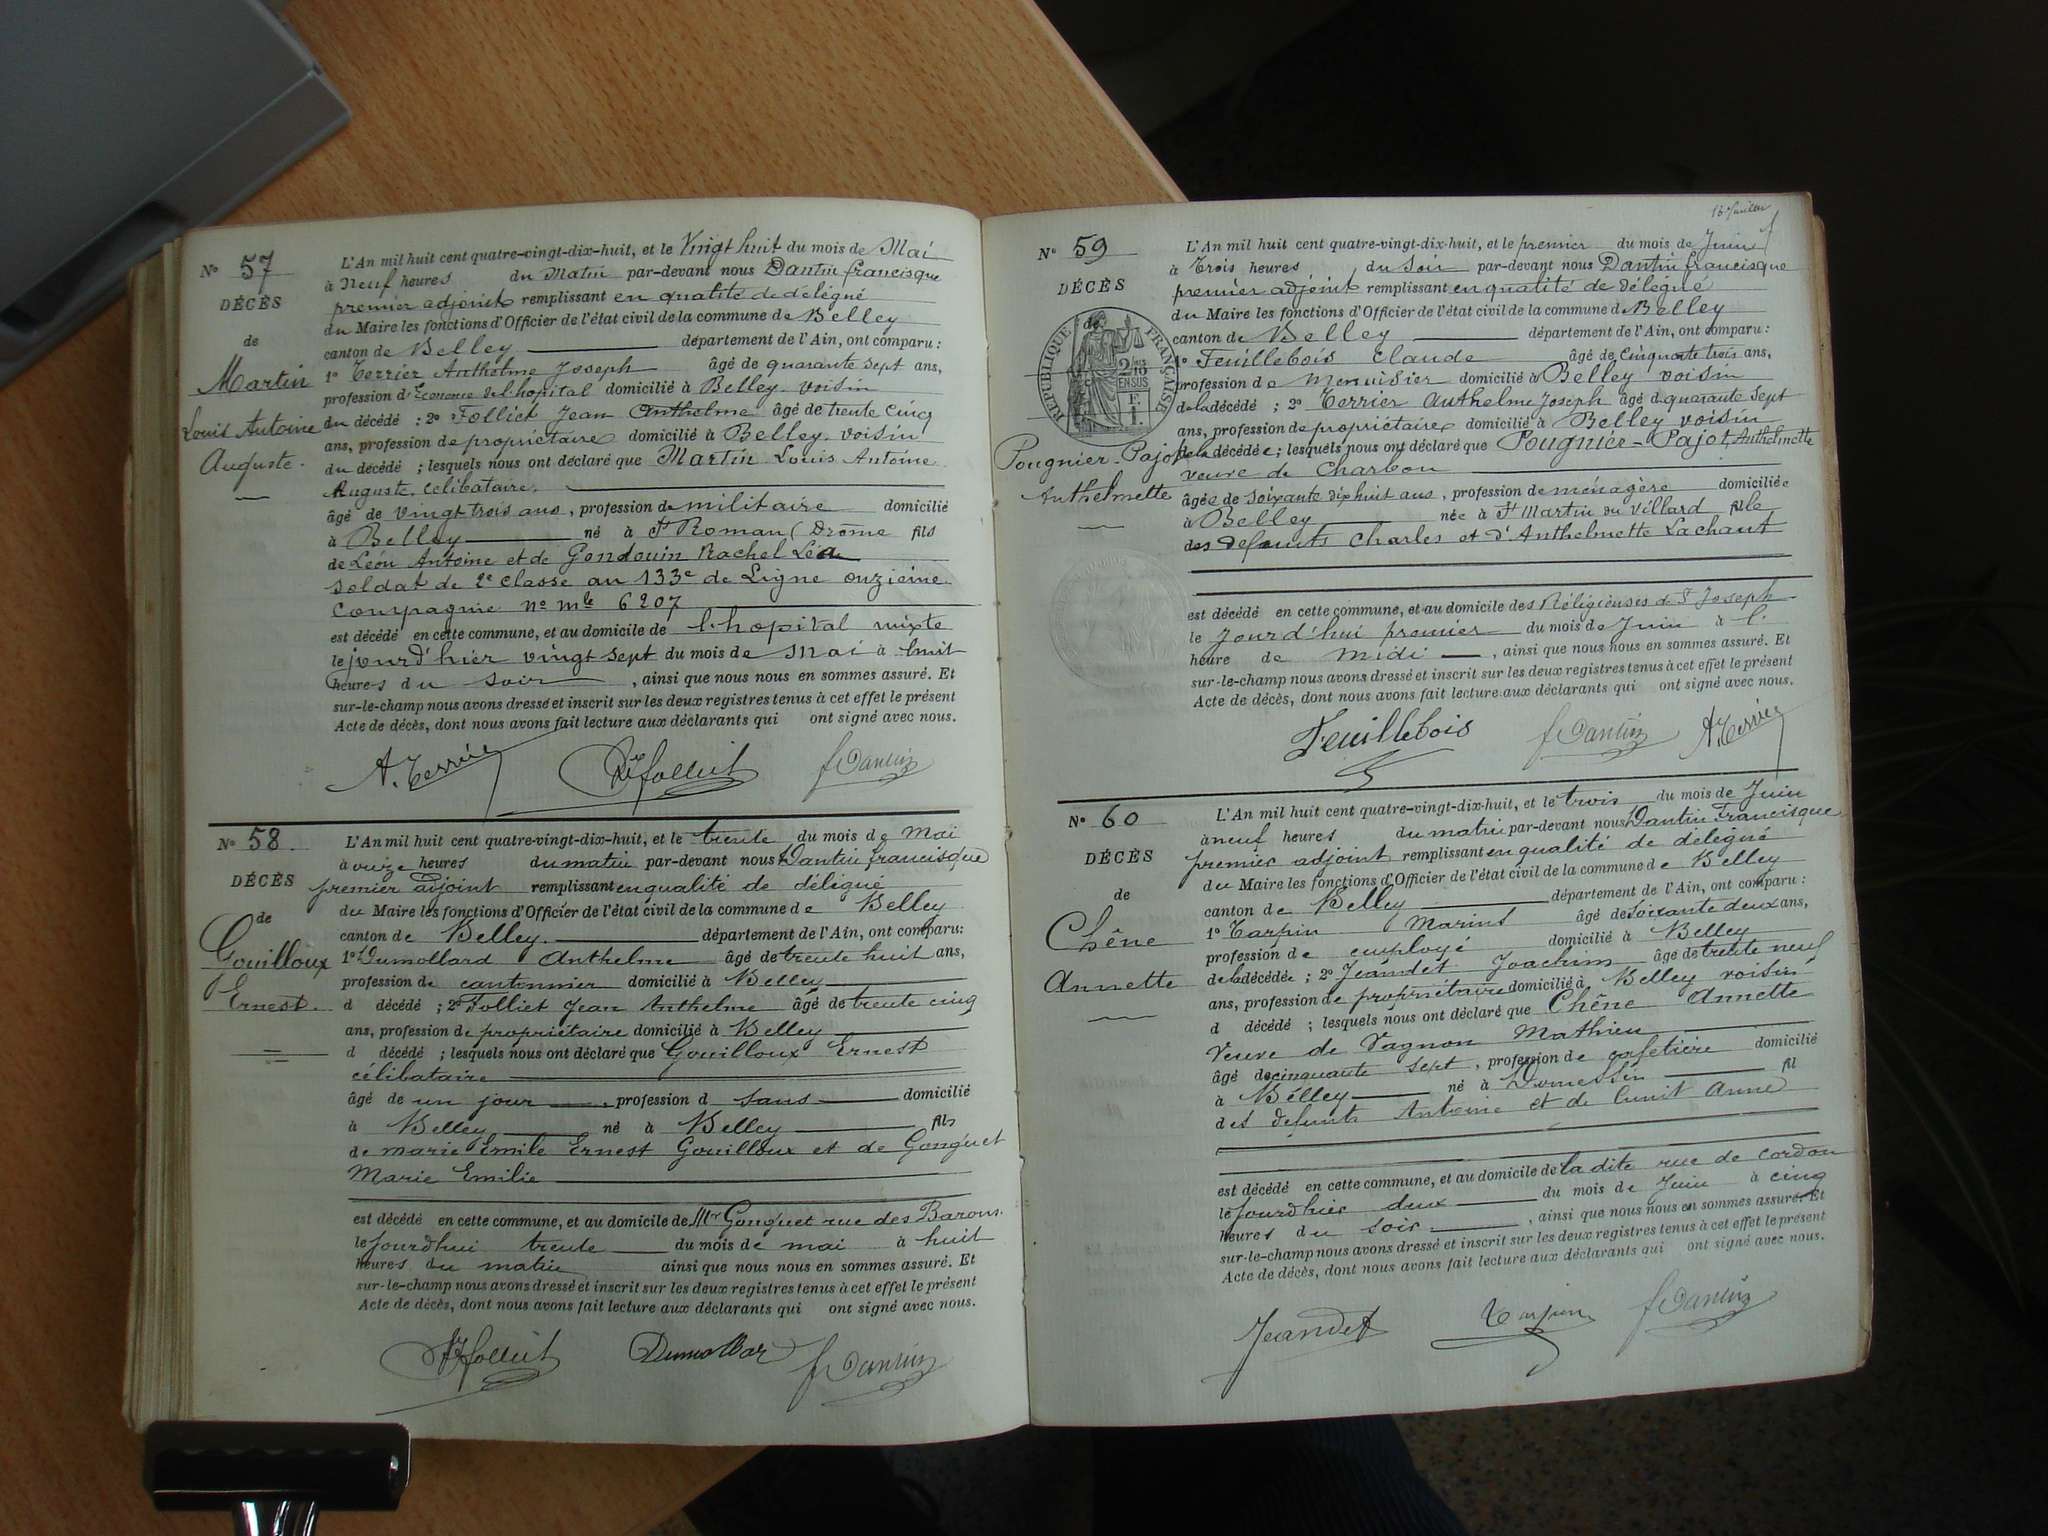 N° 57
DÉCÈS
de
Martin
Louis Antoine
Auguste.
L'An mil huit cent quatre-vingt-dix-huit, et le Vingt huit du mois de Mai
à Neuf heures du Matin par-devant nous Dantin francisque
premier adjoint remplissant en qualité de délégué
du Maire les fonctions d'Officier de l'état civil de la commune de Belley
canton de Belley département de l'Ain, ont comparu :
1° Terrier Anthelme Joseph âgé de quarante sept ans,
profession d'Econome de l'hopital domicilié à Belley voisin
du décédé ; 2° Folliet Jean Anthelme âgé de trente cinq
ans, profession de propriétaire domicilié à Belley. voisin
du décédé ; lesquels nous ont déclaré que Martin Louis Antoine
Auguste. célibataire.
âgé de vingt trois ans, profession de militaire domicilié
à Belley né à St Roman (Drôme fils
de Léon Antoine et de Gondouin Rachel Léa
soldat de 2e classe au 133e de Ligne onzième
Compagnie no mle 6207
est décédé en cette commune, et au domicile de l'hopital mixte
le jourd'hier vingt sept du mois de Mai à huit
heures du soir, ainsi que nous nous en sommes assuré. Et
sur-le-champ nous avons dressé et inscrit sur les deux registres tenus à cet effet le présent
Acte de décès, dont nous avons fait lecture aux déclarants qui ont signé avec nous.
A. Terrier Folliet f Dantin
N° 58.
DÉCÈS
de
Gouilloux
Ernest.
L'An mil huit cent quatre-vingt-dix-huit, et le trente du mois de Mai
à onze heures du matin par-devant nous Dantin francisque
premier adjoint remplissant en qualité de délégué
du Maire les fonctions d'Officier de l'état civil de la commune de Belley
canton de Belley. département de l'Ain, ont comparu:
1° Dumollard Anthelme âgé de trente huit ans,
profession de cantonnier domicilié à Belley
d décédé ; 2° Folliet Jean Anthelme âgé de trente cinq
ans, profession de propriétaire domicilié à Belley
d décédé ; lesquels nous ont déclaré que Gouilloux Ernest
célibataire
âgé de un jour, profession d sans domicilié
à Belley né à Belley fils
de marie Emile Ernest Gouilloux et de Gonguet
Marie Emilie
est décédé en cette commune, et au domicile de Mr Gonguet rue des Barons.
le jourd'hui trente du mois de mai à huit
heures du matin ainsi que nous nous en sommes assuré. Et
sur-le-champ nous avons dressé et inscrit sur les deux registres tenus à cet effet le présent
Acte de décès, dont nous avons fait lecture aux déclarants qui ont signé avec nous.
Folliet Dumollar f Dantin
N° 59
DÉCÈS
de
RÉPUBLIQUE FRANÇAISE
2/10
EN SUS
Pougnier-Pajot
Anthelmette
L'An mil huit cent quatre-vingt-dix-huit, et le premier du mois de Juin
à Trois heures du soir par-devant nous Dantin francisque
premier adjoint remplissant en qualité de délégué
du Maire les fonctions d'Officier de l'état civil de la commune de Belley
canton de Belley département de l'Ain, ont comparu :
1° Feuillebois Claude âgé de cinquante trois ans,
profession de Menuisier domicilié à Belley voisin
de la décédé ; 2° Terrier Anthelme Joseph âgé d quarante sept
ans, profession de propriétaire domicilié à Belley voisin
de la décédée ; lesquels nous ont déclaré que Pougnier-Pajot Anthelmette
veuve de Charbon
âgée de soixante dix huit ans, profession de ménagère domiciliée
à Belley née à St Martin du Villard fille
des défunts Charles et d'Anthelmette Lachant
est décédé en cette commune, et au domicile des Réligieuses de St Joseph
le jourd'hui premier du mois de Juin à l'
heure de midi, ainsi que nous nous en sommes assuré. Et
sur-le-champ nous avons dressé et inscrit sur les deux registres tenus à cet effet le présent
Acte de décès, dont nous avons fait lecture aux déclarants qui ont signé avec nous.
Feuillebois f Dantin A. Terrier
N° 60
DÉCÈS
de
Chêne
Annette
L'An mil huit cent quatre-vingt-dix-huit, et le trois du mois de Juin
à neuf heures du matin par-devant nous Dantin Francisque
premier adjoint remplissant en qualité de délégué
du Maire les fonctions d'Officier de l'état civil de la commune de Belley
canton de Belley département de l'Ain, ont comparu :
1° Tarpin Marius âgé de soixante deux ans,
profession de employé domicilié à Belley
de la décédée ; 2° Jeandet Joachim âgé de trente neuf
ans, profession de propriétaire domicilié à Belley voisin
d décédé ; lesquels nous ont déclaré que Chêne Annette
Veuve de Vagnon Mathieu
âgé de cinquante sept, profession de cafetière domicilié
à Belley né à Domessin fil
des defunts Antoine et de Cunit Anne
est décédé en cette commune, et au domicile de la dite rue de cordon
le jourd'hier deux du mois de Juin à cinq
heures du soir, ainsi que nous nous en sommes assuré. Et
sur-le-champ nous avons dressé et inscrit sur les deux registres tenus à cet effet le présent
Acte de décès, dont nous avons fait lecture aux déclarants qui ont signé avec nous.
Jeandet Tarpin f Dantin